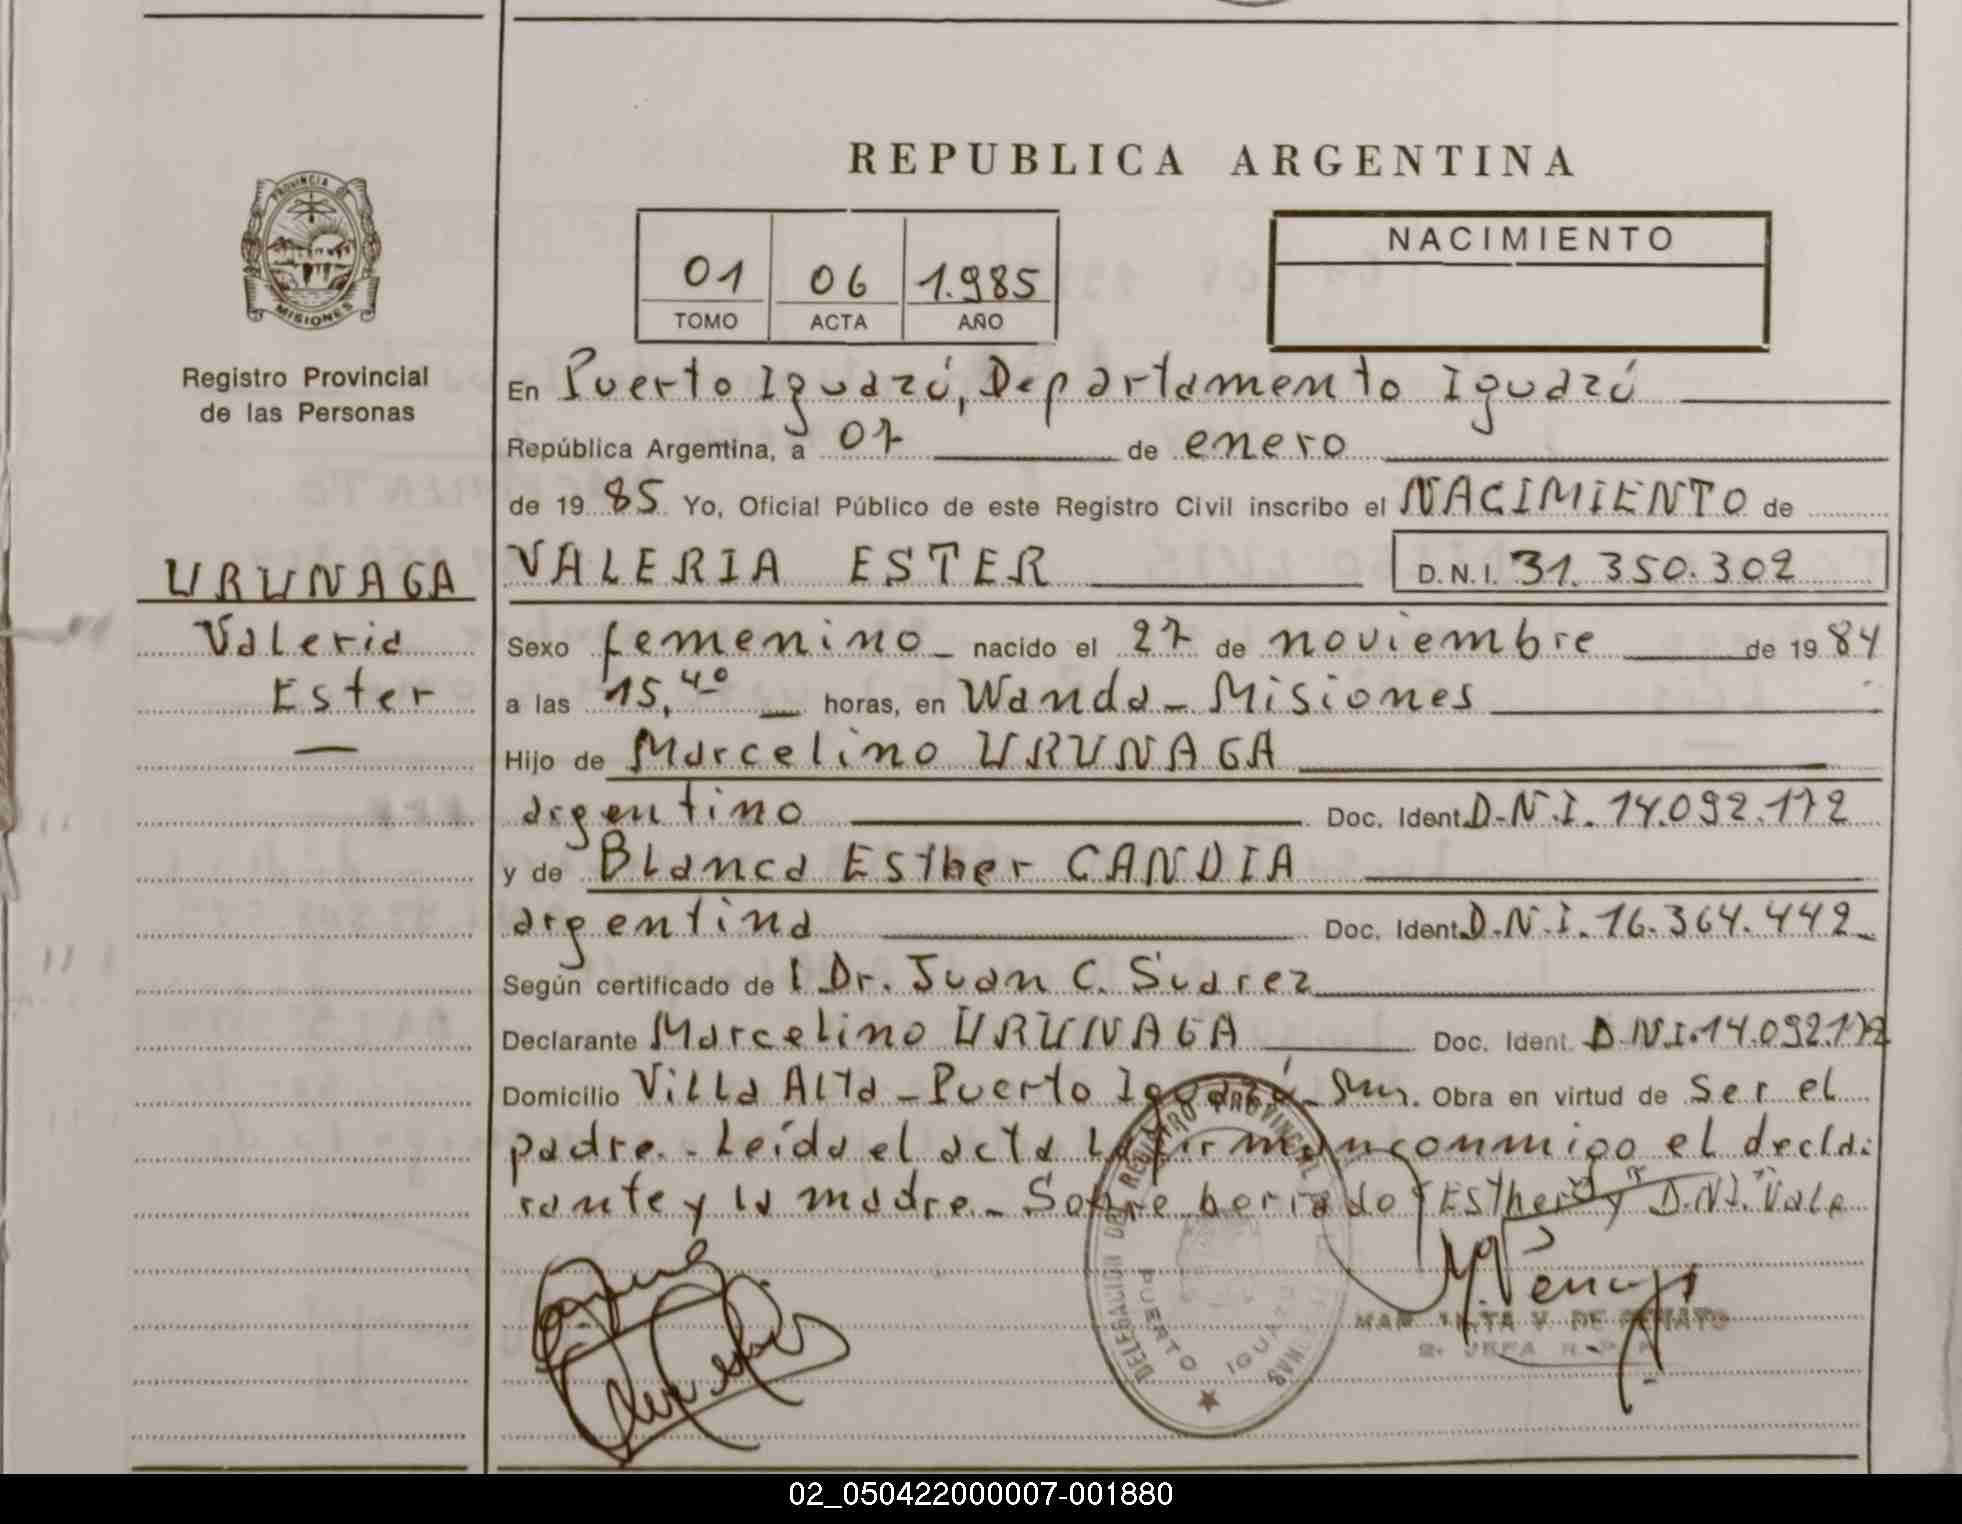 REPUBLICA ARGENTINA
PROVINCIA DE
MISIONES
Registro Provincial
de las Personas
01 06 1.985
TOMO ACTA AÑO
NACIMIENTO
En Puerto Iguazú, Departamento Iguazú
República Argentina, a 07 de enero
de 19 85 Yo, Oficial Público de este Registro Civil inscribo el NACIMIENTO de
URUNAGA
Valeria
Ester
VALERIA ESTER D.N.I. 31.350.302
Sexo femenino nacido el 27 de noviembre de 19 84
a las 15,40 horas, en Wanda - Misiones
Hijo de Marcelino URUNAGA
argentino Doc. Ident. D.N.I. 14.092.172
y de Blanca Esther CANDIA
argentina Doc. Ident. D.N.I. 16.364.442
Según certificado de l Dr. Juan C. Suarez
Declarante Marcelino URUNAGA Doc. Ident. D.N.I. 14.092.172
Domicilio Villa Alta - Puerto Iguazú - Obra en virtud de Ser el
padre. - Leída el acta la firman conmigo el decla-
rante y la madre. - Sobre borrado "Esther" y "D.N.I." Vale
DELEGACION DEL REGISTRO PROVINCIAL DE LAS PERSONAS
PUERTO IGUAZU
02_050422000007-001880